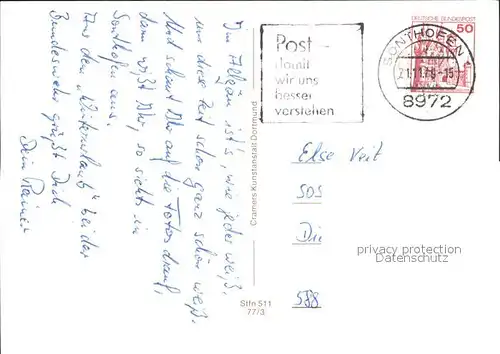 Im Allgäu ist's, wie jeder weiß,
um diese Zeit schon ganz schön weiß.
Und schaut Ihr auf die Fotos drauf,
dann wißt Ihr, so sieht's in
Sonthofen aus.
Aus dem "Winterurlaub" bei der
Bundeswehr grüßt Dich
Dein Rainer
Cramers Kunstanstalt Dortmund
Stfn 511
77/3
Post -
damit
wir uns
besser
verstehen
SONTHOFEN
21.11.78-15
8972
DEUTSCHE BUNDESPOST
50
Else Veit
SOS
Die
588
privacy protection
Datenschutz